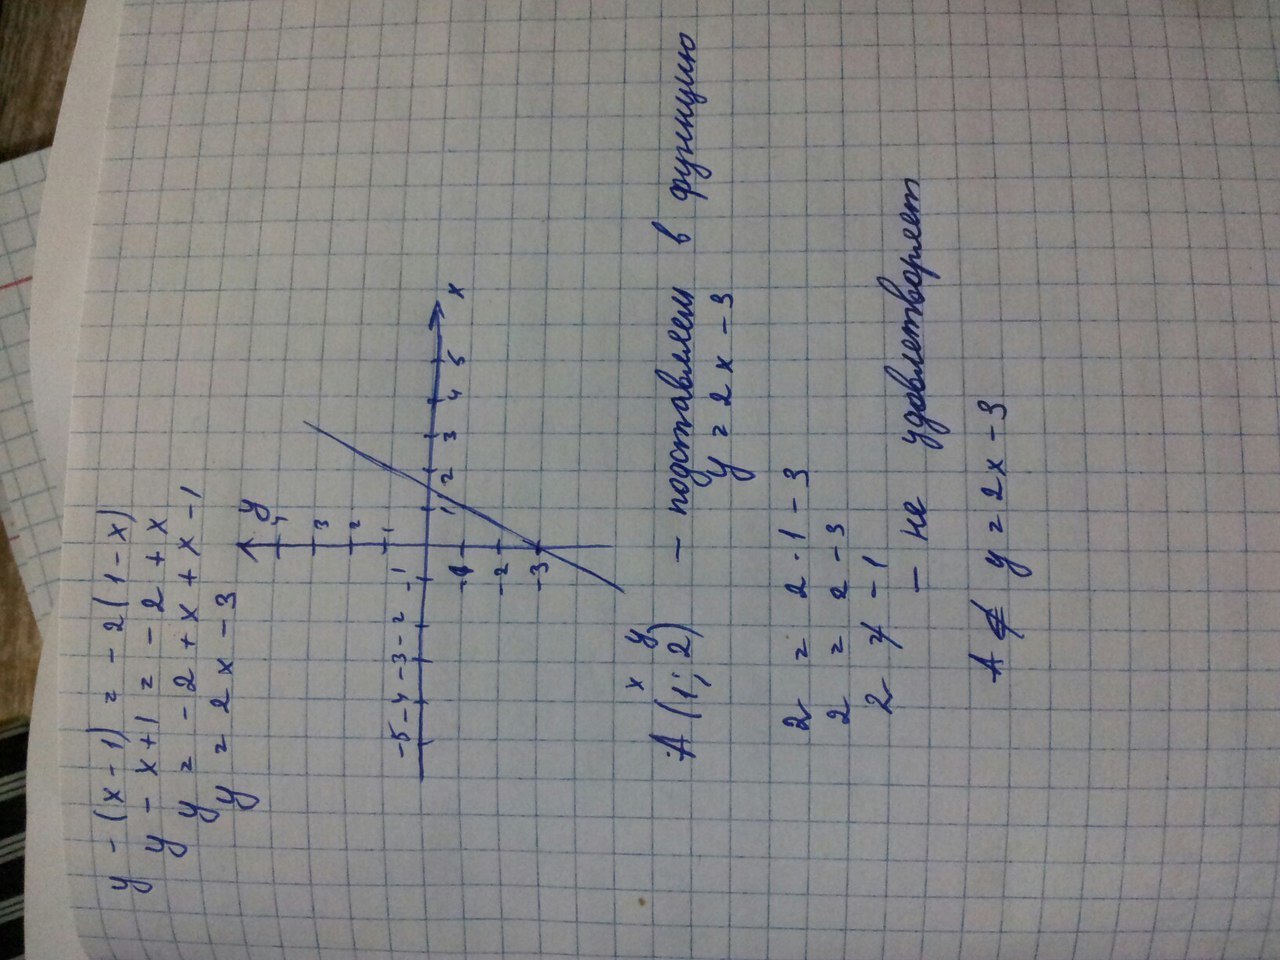 y - (x - 1) = - 2(1 - x)
y - x + 1 = - 2 + x
y = - 2 + x + x - 1
y = 2x - 3
y
4
3
2
1
-5 -4 -3 -2 -1 1 2 3 4 5 x
-1
-2
-3
x y
A (1; 2) - подставляем в функцию
y = 2x - 3
2 = 2 · 1 - 3
2 = 2 - 3
2 ≠ -1
- не удовлетворяет
A ∉ y = 2x - 3